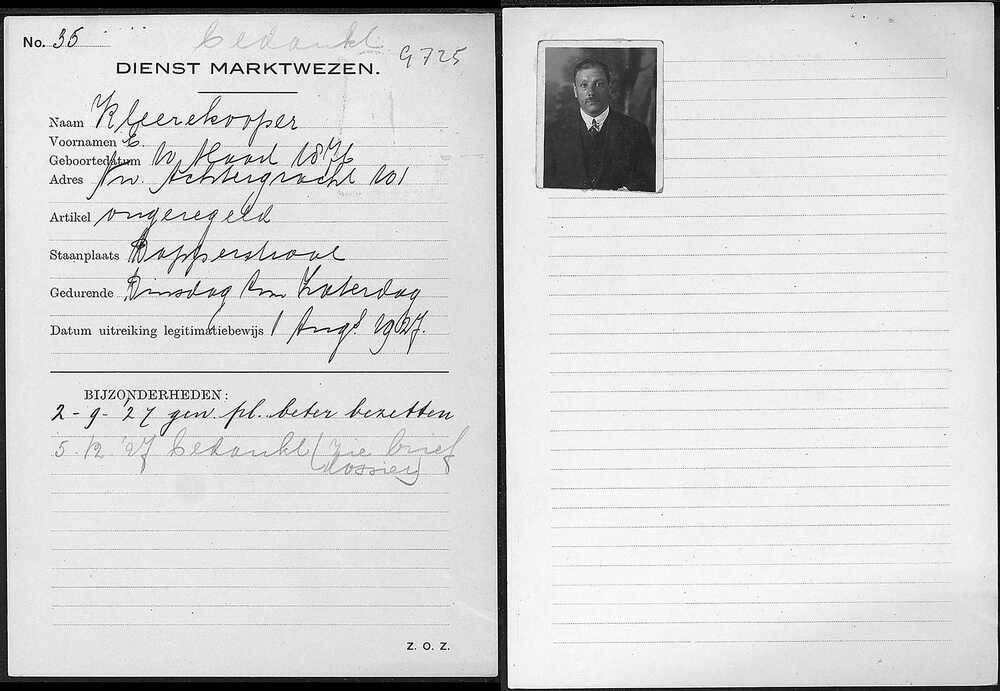 No. 35
bedankt
9725
DIENST MARKTWEZEN.
Naam Kleerekooper
Voornamen E.
Geboortedatum 10 Maart 1876
Adres Nw. Achtergracht 101
Artikel ongeregeld
Staanplaats Dapperstraat
Gedurende Dinsdag t/m Zaterdag
Datum uitreiking legitimatiebewijs 1 Aug. 1927.
BIJZONDERHEDEN:
2-9-'27 gen. pl. beter bezetten
5/12 '27 bedankt (zie brief
dossier)
Z. O. Z.